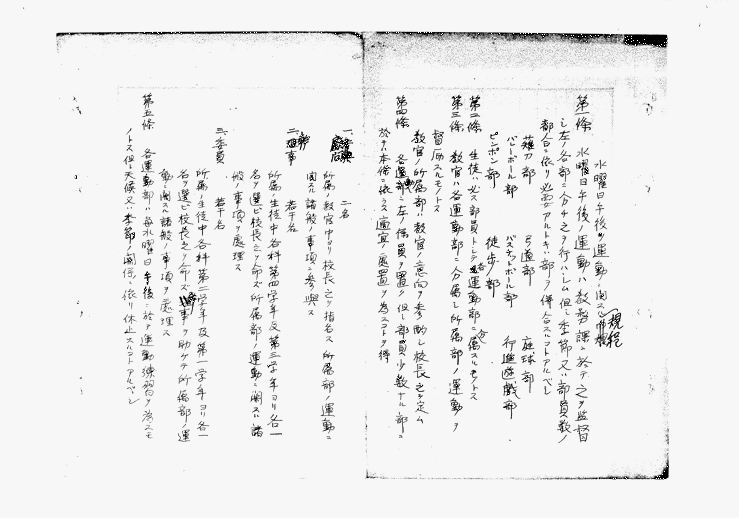 水曜日午後ノ運動ニ関スル規程
第一條 水曜日午後ノ運動ハ教務課ニ於テ之ヲ監督
シ左ノ各部ニ分チ之ヲ行ハシム但シ季節又ハ部員数ノ
都合ニ依リ必要アルトキハ部ヲ併合スルコトアルベシ
薙刀部 弓道部 庭球部
バレーボール部 バスケットボール部 行進遊戯部
ピンポン部 徒歩部
第二條 生徒ハ必ス部員トシテ各運動部ニ分属スルモノトス
第三條 教官ハ各運動部ニ分属シ所属部ノ運動ヲ
督励スルモノトス
教官ノ所属部ハ教官ノ意向ヲ参酌シ校長之ヲ定ム
第四條 各運動部ニ左ノ係員ヲ置ク但シ部員少数ナル部ニ
於テハ本條ニ依ラス適宜ノ処置ヲ為スコトヲ得
一、 二名
所属ノ教官中ヨリ校長之ヲ指名ス所属部ノ運動ニ
関スル諸般ノ事項ニ参与ス
二、幹事 若干名
所属ノ生徒中各科第四学年及第三学年ヨリ各一
名ヲ選ビ校長之ヲ命ズ所属部ノ運動ニ関スル諸
般ノ事項ヲ処理ス
三、委員 若干名
所属ノ生徒中各科第二学年及第一学年ヨリ各一
名ヲ選ビ校長之ヲ命ズ幹事ヲ助ケテ所属部ノ運
動ニ関スル諸般ノ事項ヲ処理ス
第五條 各運動部ハ毎水曜日午後ニ於テ運動練習ヲ為スモ
ノトス但シ天候又ハ季節ノ関係ニ依リ休止スルコトアルベシ